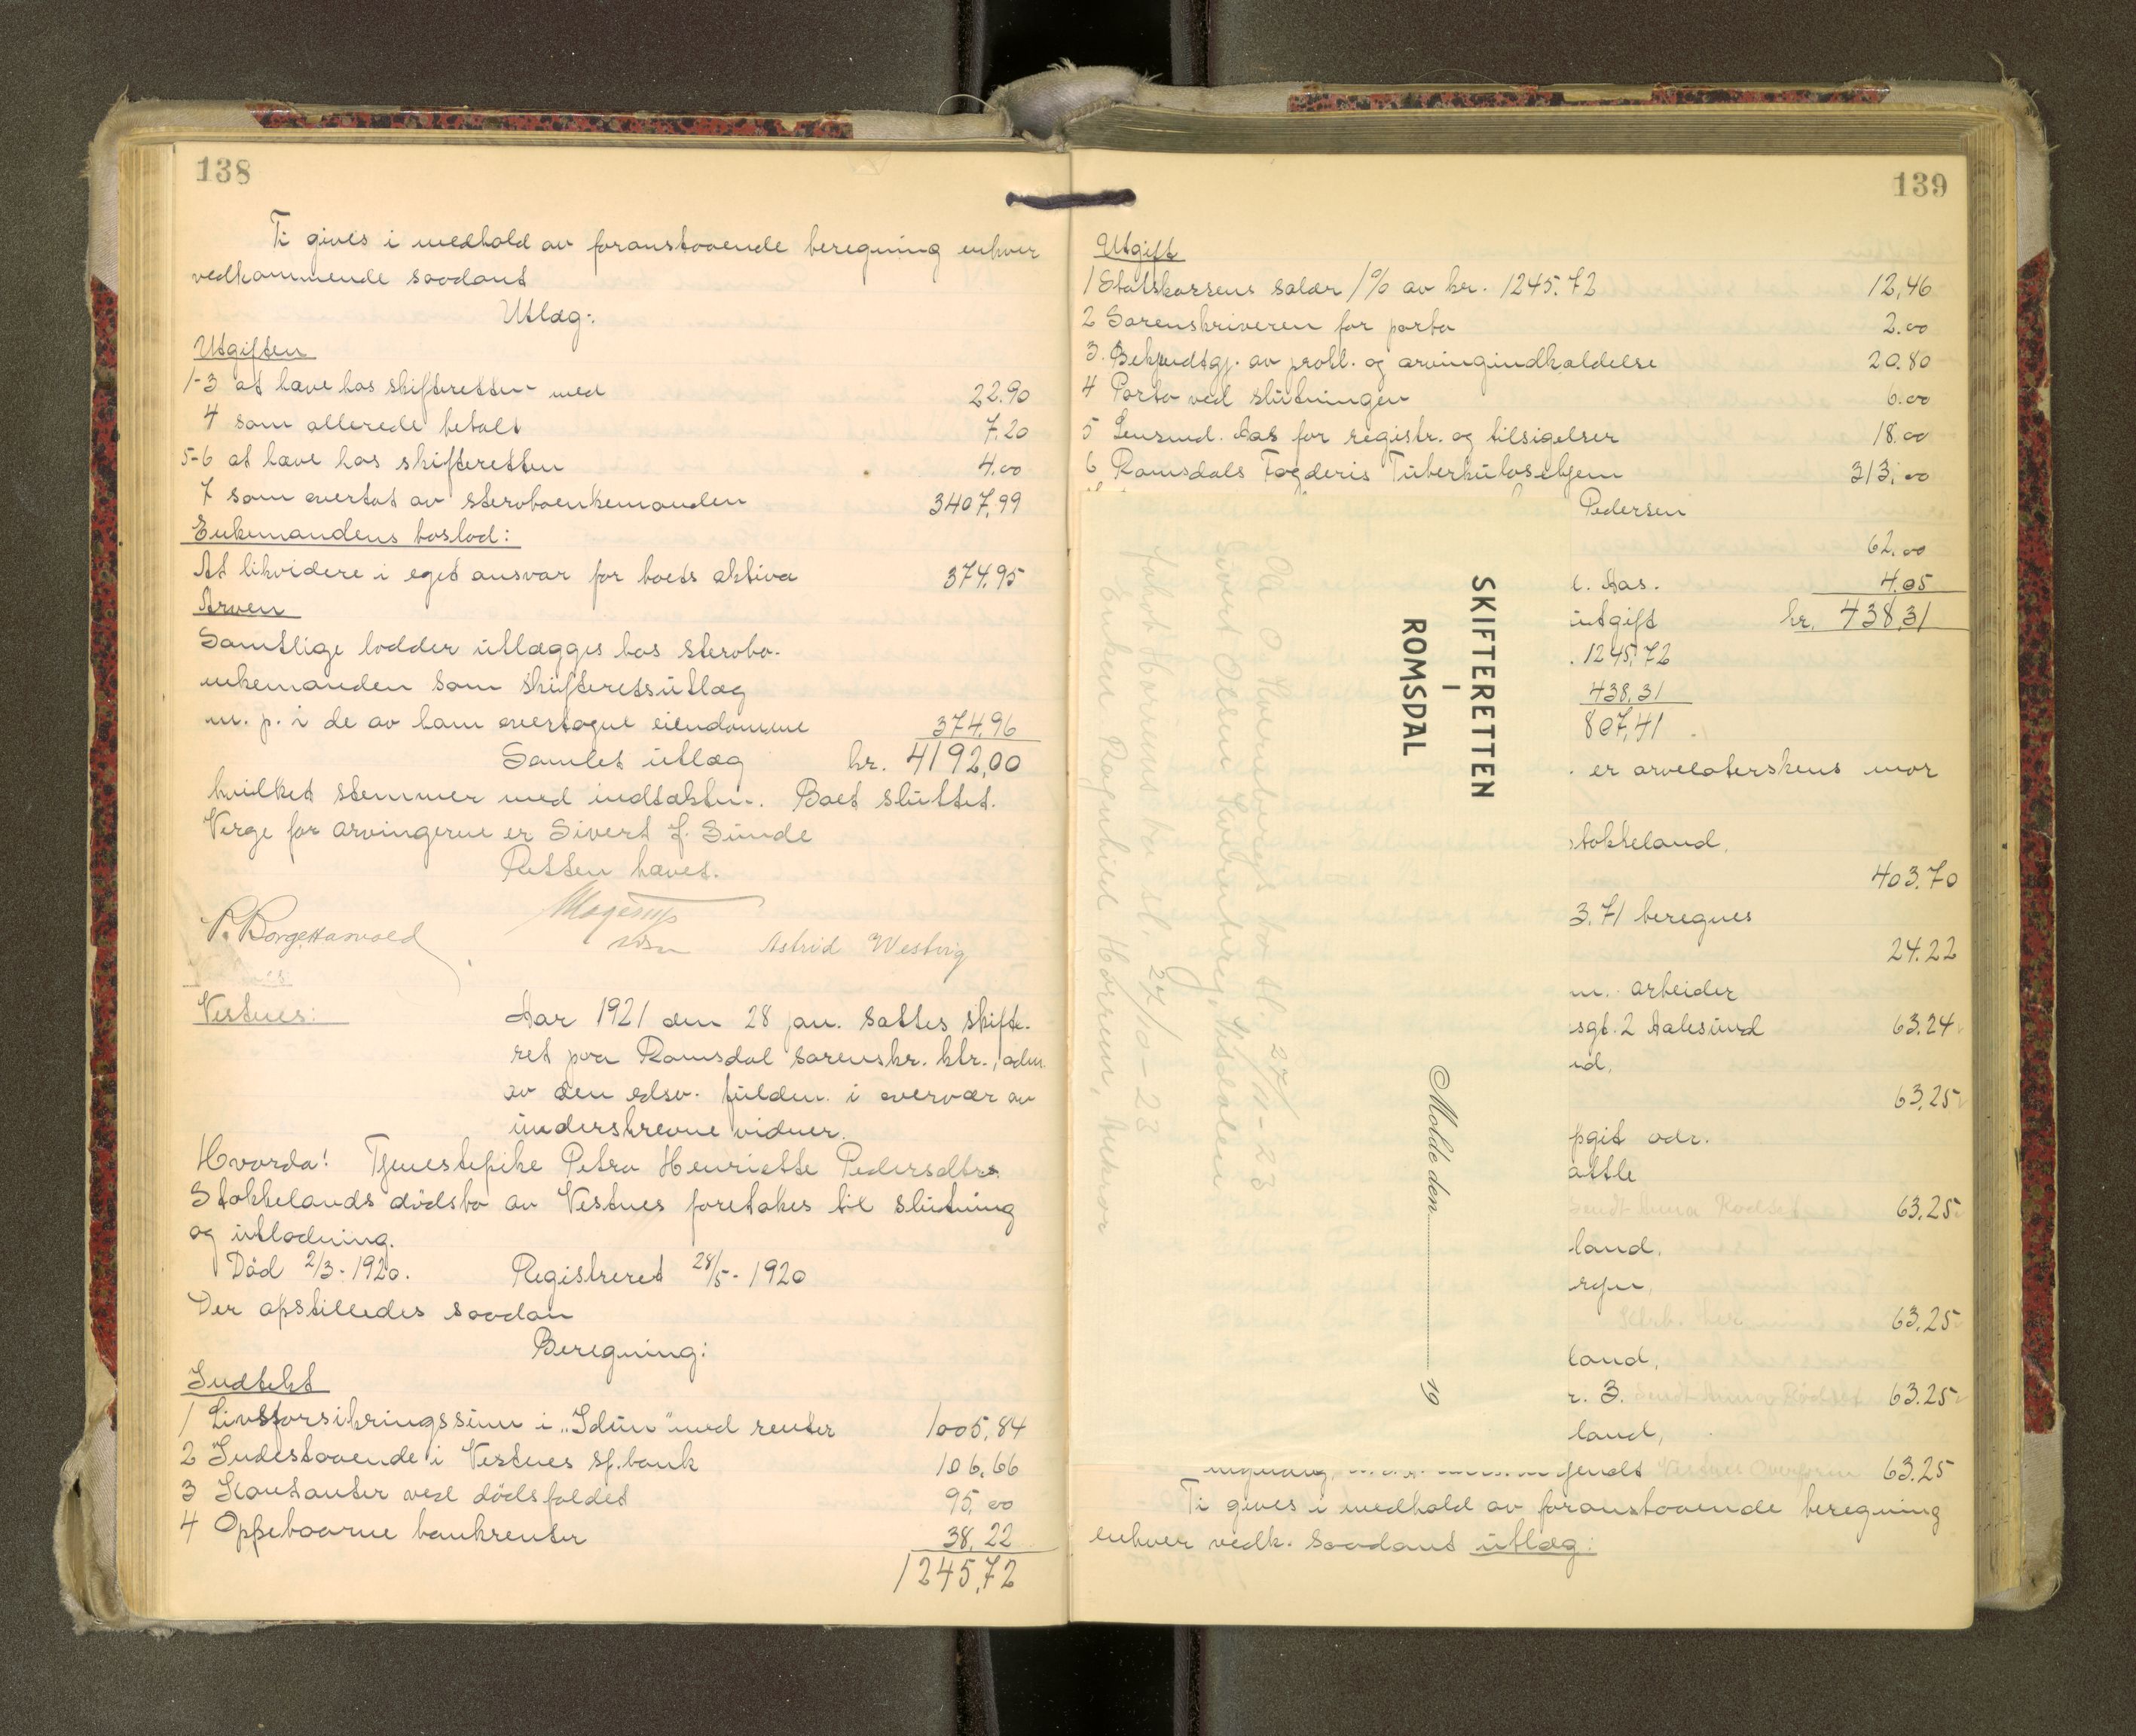 138
Ti gives i medhold av foranstaaende beregning enhver
vedkommende saadant
Utlæg:
Utgiften
1-3 at hæve hos skifteretten med 22.90
4 som allerede betalt 7.20
5-6 at hæve hos skifteretten 4.00
7 som overtat av stervboenkemanden 3407,99
Enkemandens boslod:
At likvidere i eget ansvar for boets aktiva 374.95
Arven
Samtlige lodder utlægges hos stervbo-
enkemanden som skifteretsutlæg
m. p. i de av ham overtagne eiendomme 374,96
Samlet utlæg kr. 4192,00
hvilket stemmer med indtækten. Boet sluttet.
Verge for arvingerne er Sivert J. Sunde
Retten hævet.
P. Borgehamvold
Astrid Westvig
Vestnes:
Aar 1921 den 28 jan. sattes skifte-
ret paa Romsdal sorenskr. ktr., adm.
av den edsv. fuldm. i overvær av
underskrevne vidner.
Hvorda! Tjenestepike Petra Henriette Pedersdtr.
Stokkelands dödsbo av Vestnes foretokes til slutning
og utlodning.
Död 2/3-1920. Registreret 28/5-1920
Der opstilledes saadan
Beregning:
Indtekt
1 Livsforsikringssum i "Idun" med renter 1005,84
2 Indestaaende i Vestnes sp.bank 106,66
3 Kontanter ved dödsfaldet 95,00
4 Oppebaarne bankrenter 38,22
1245,72
139
Utgift
1 Statskassens salær 1% av kr. 1245.72 12,46
2 Sorenskriveren for porto 2.00
3. Bekjendtgj. av prokl. og arvingindkaldelse 20.80
4 Porto ved slutningen 6.00
5 Lensmd. Aas for registr. og tilsigelser 18.00
6 Romsdals Fogderis Tuberkulosehjem 313,00
Pedersen
62.00
l. Aas. 4.05
utgift kr. 438,31
. 1245,72
438,31
807,41
. er arvelaterskens mor
stokkeland,
403.70
3.71 beregnes
24.22
m. arbeider
sgt. 2 Aalesund 63.24
nd,
63.25
pgit adr.
attle
sendt Anna Rödset 63.25
land,
rgen,
63.25
land,
r. 3. sendt Anna Rödset 63.25
land,
sendt Vestnes Overform 63.25
Ti gives i medhold av foranstaaende beregning
enhver vedk. saadant utlæg:
SKIFTERETTEN
I
ROMSDAL
Molde den 19